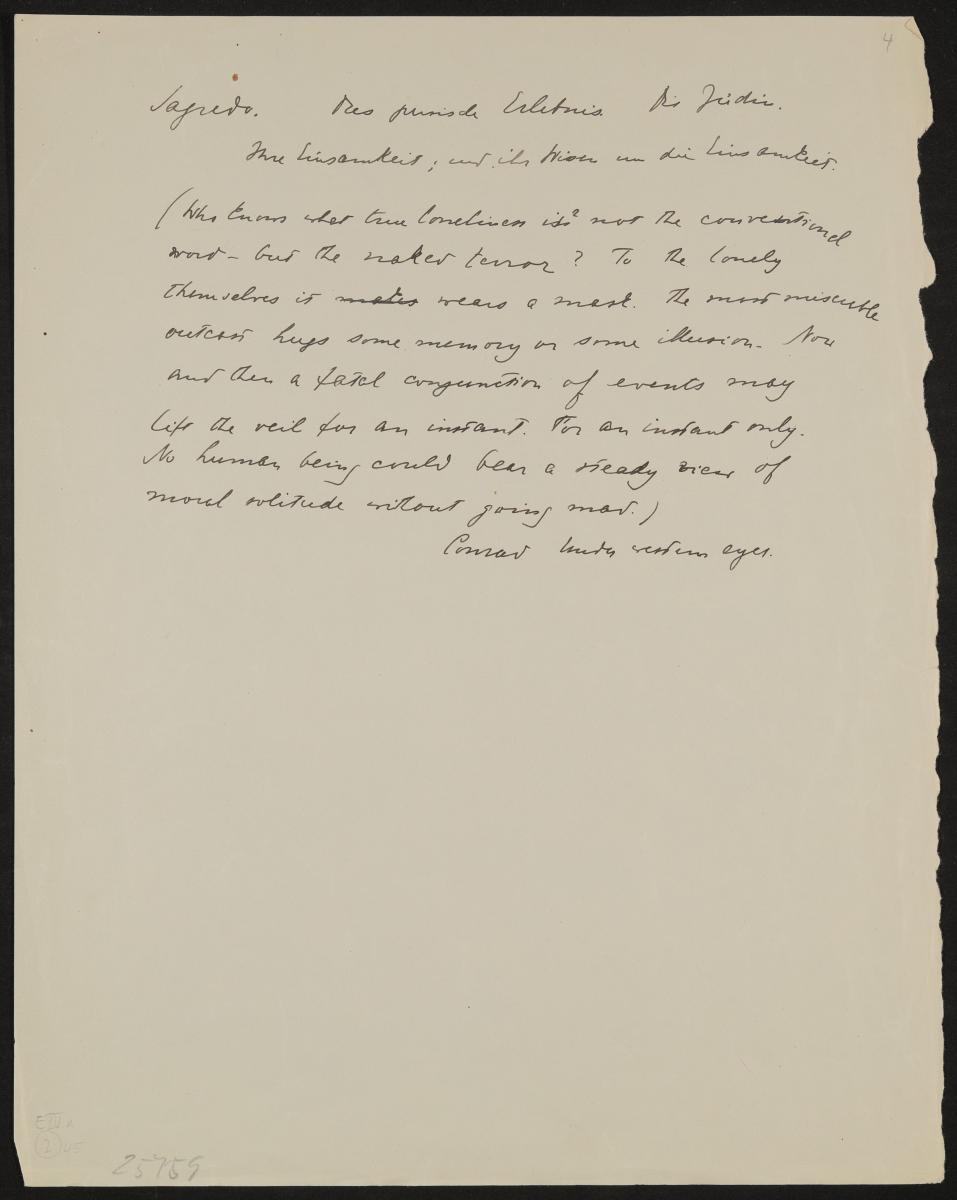 4
Sagredo. Das punische Erlebnis. Die Jüdin.
Ihre Einsamkeit; und ihr Wissen um die Einsamkeit.
(Who knows what true loneliness is? not the conventional
word – but the naked terror? To the lonely
themselves it makes wears a mask. The most miserable
outcast hugs some memory or some illusion. Now
and then a fatal conjunction of events may
lift the veil for an instant. For an instant only.
No human being could bear a steady view of
moral solitude without going mad.)
Conrad Under western eyes.
25759